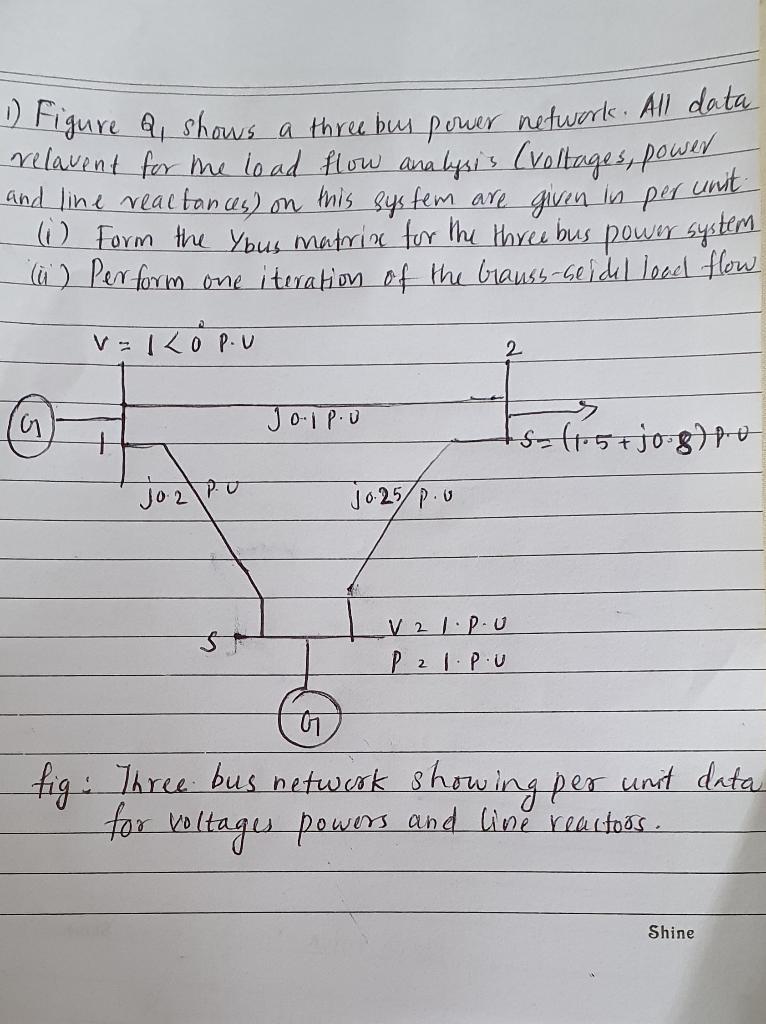 1) Figure Q1 shows a three bus power network. All data
relavent for the load flow analysis (voltages, power
and line reactances) on this system are given in per unit.
(i) Form the Ybus matrix for the three bus power system
(ii) Perform one iteration of the Gauss-Seidel load flow
V = 1<0° P.U
2
G
J0.1 P.U
1
S = (1.5 + j0.8) P.U
j0.2 P.U
j0.25 P.U
V = 1.P.U
S
P = 1.P.U
G
fig: Three bus network showing per unit data
for voltages powers and line reactors.
Shine